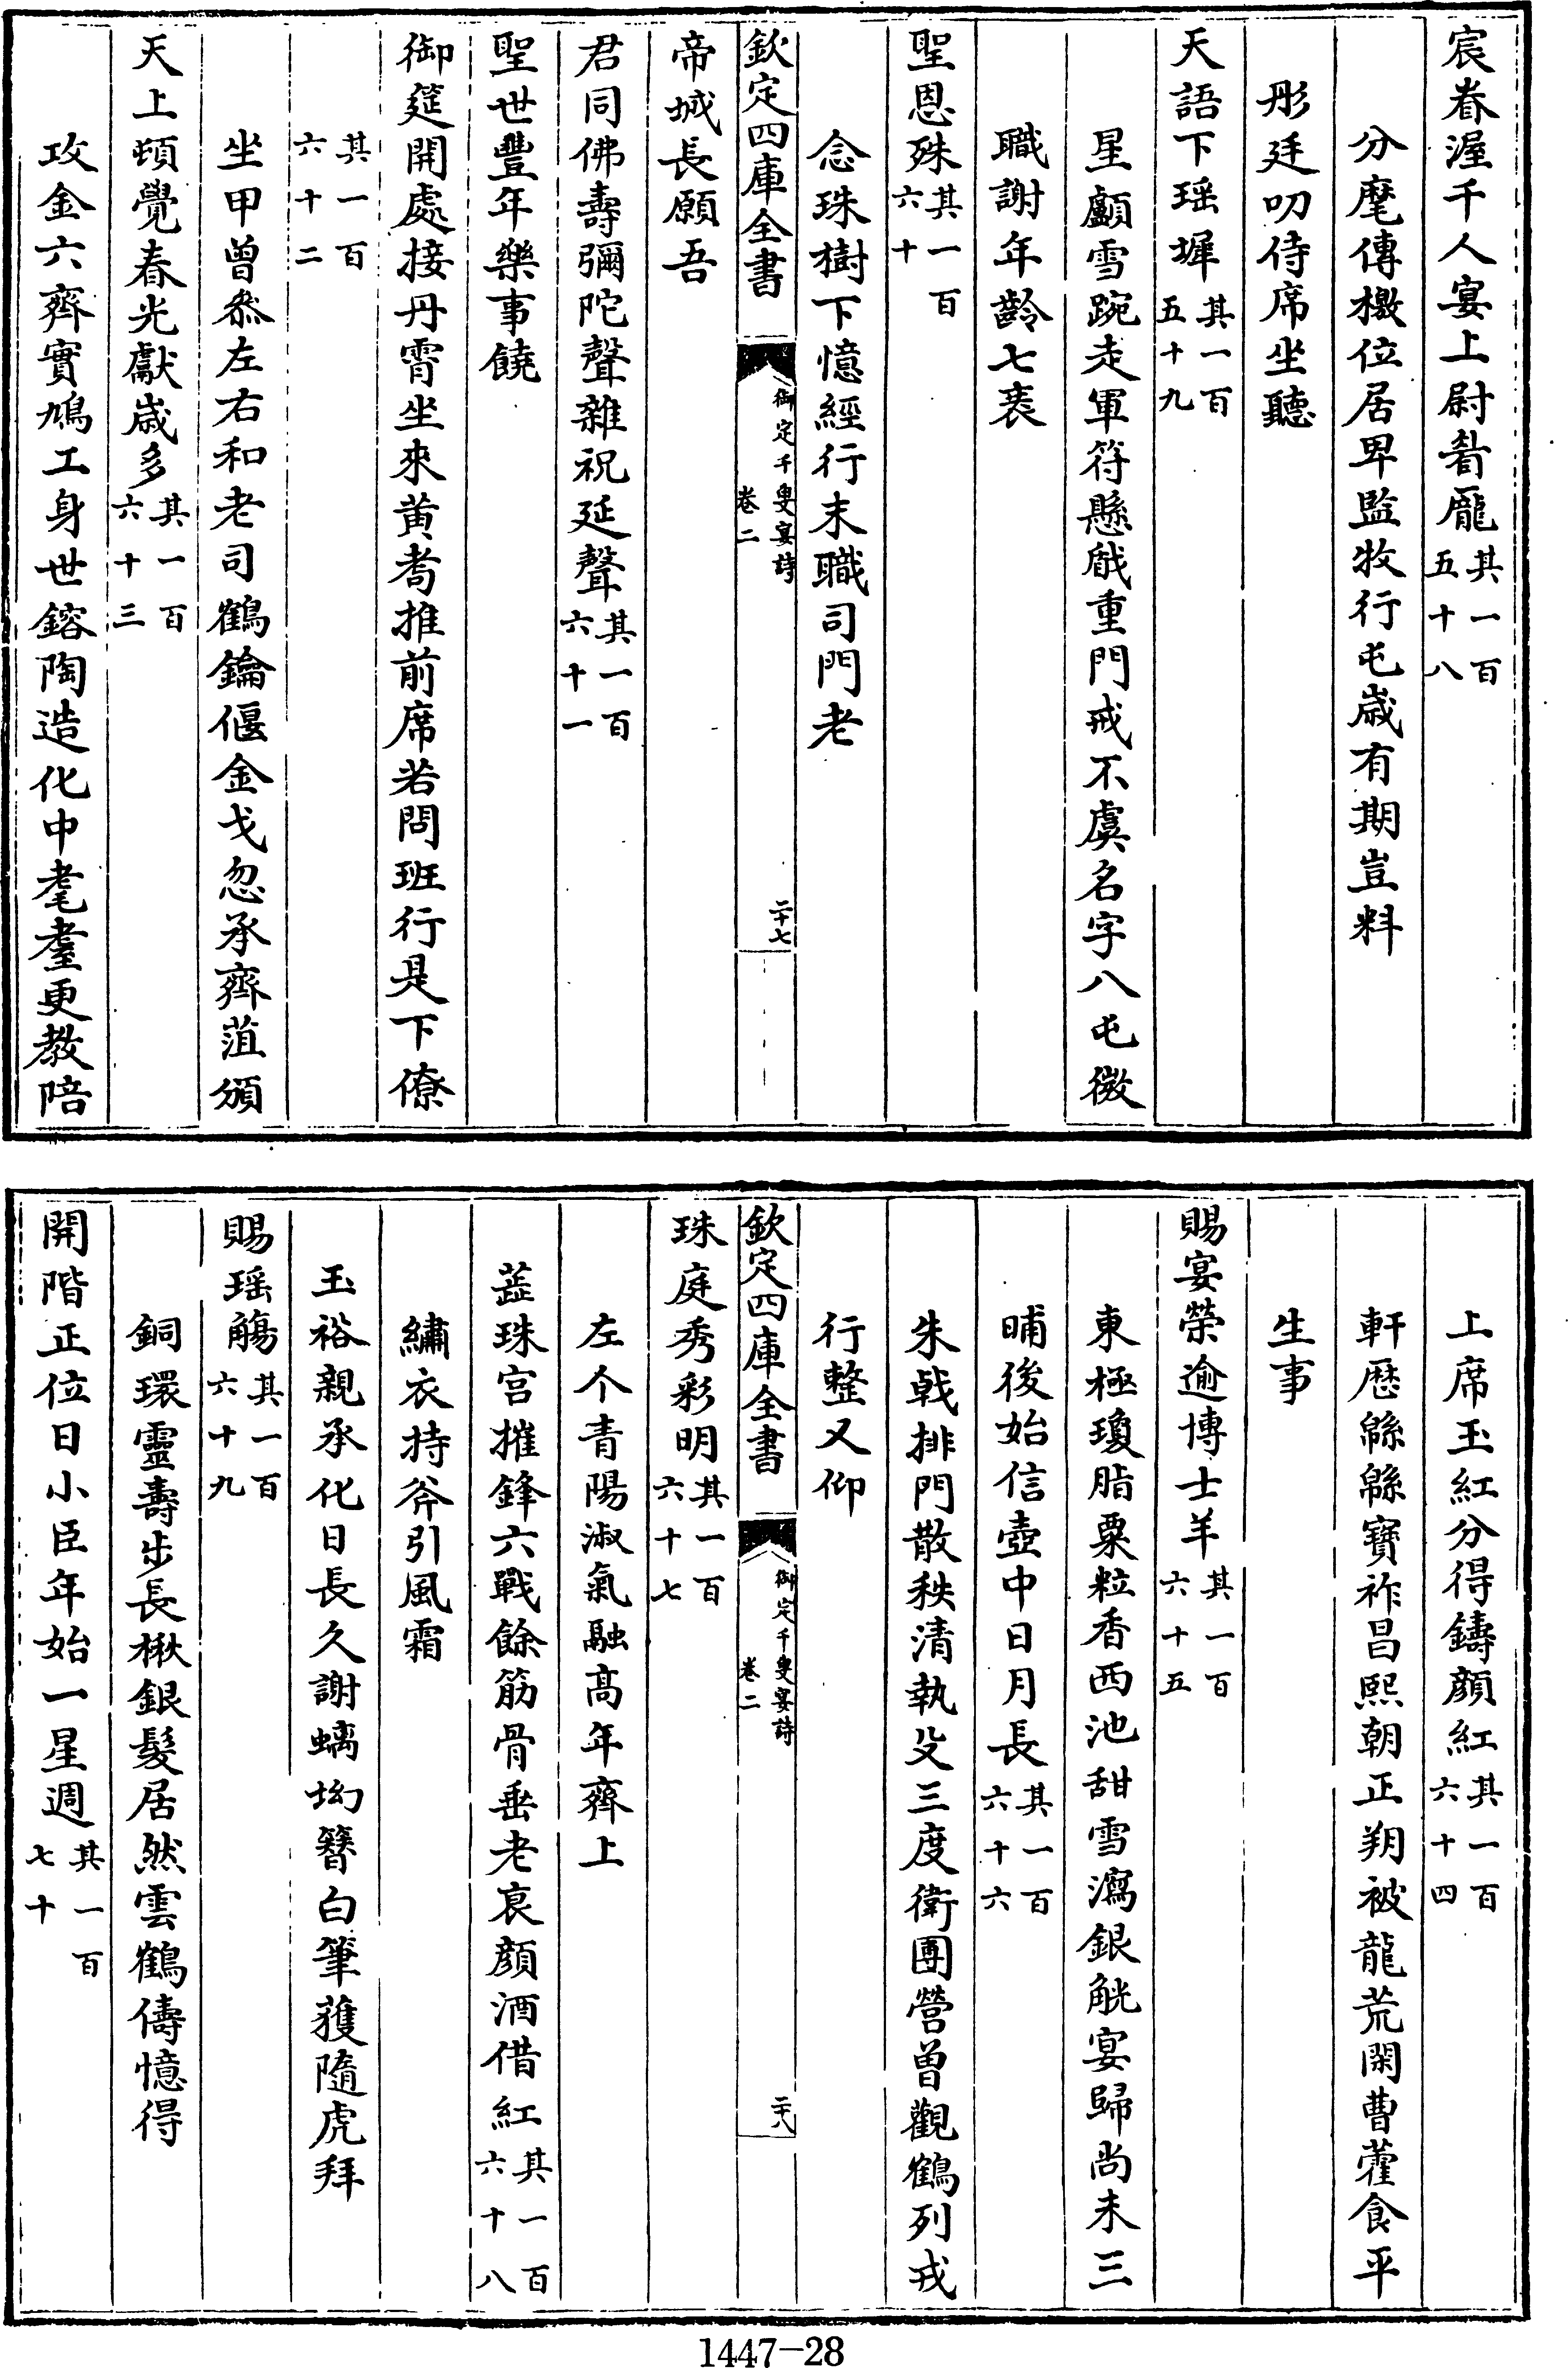 宸眷渥千人宴上尉耈龎其一百五十八
分麾傳檄位居卑監牧行屯歳有期豈料
彤廷叨侍席坐聽
天語下瑶墀其一百五十九
星顱雪踠走軍符懸戗重門戒不虞名字八屯微
職謝年齡七袠
聖恩殊其一百六十
念珠樹下憶經行末職司門老
欽定四庫全書
御定千叟宴詩
卷二
二十七
帝城長願吾
君同佛壽彌陀聲雜祝延聲其一百六十一
聖世豐年樂事饒
御筵開處接丹霄坐來黄耈推前席若問班行是下僚
其一百六十二
坐甲曾叅左右和老司鶴鑰偃金戈忽承齊葅頒
天上頓覺春光獻歳多其一百六十三
攻金六齊實鳩工身世鎔陶造化中耄耋更教陪
上席玉紅分得鑄顔紅其一百六十四
軒歴緜緜寶祚昌熙朝正朔被龍荒閑曹藿食平
生事
賜宴榮逾博士羊其一百六十五
東極瓊脂粟粒香西池甜雪瀉銀觥宴歸尚未三
晡後始信壺中日月長其一百六十六
朱戟排門散秩清執殳三度衛團營曽觀鶴列戎
行整又仰
欽定四庫全書
御定千叟宴詩
卷二
二十八
珠庭秀彩明其一百六十七
左个青陽淑氣融髙年齊上
蕋珠宫摧鋒六戰餘筋骨垂老哀顔酒借紅其一百六十八
繡衣持斧引風霜
玉裕親承化日長久謝螭坳簪白筆獲隨虎拜
賜瑶觴其一百六十九
銅環靈壽步長楸銀髪居然雲鶴儔憶得
開階正位日小臣年始一星週其一百七十
1447-28